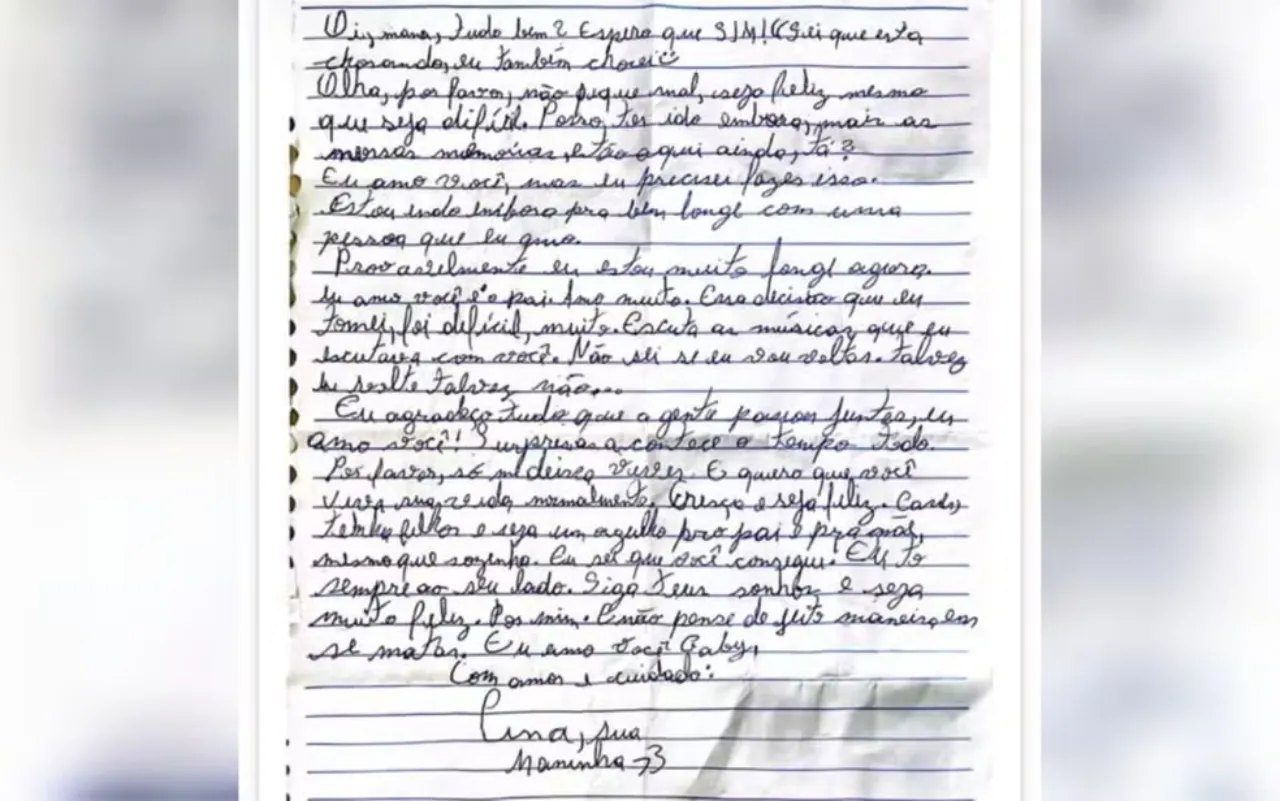 Oi, mana, tudo bem? Espero que SIM! (Sei que esta
chorando, eu também chorei
Olha, por favor, não fique mal, seja feliz mesmo
que seja difícil. Posso, ter ido embora, mais as
nossas memórias, estão aqui ainda, tá?
Eu amo você, mas eu precisei fazer isso.
Estou indo embora pra bem longe com uma
pessoa que eu amo.
Provavelmente eu estou muito longe agora.
Eu amo você e o pai. Amo muito. Essa decisão que eu
tomei, foi defícil, muito. Escuta as músicas que eu
escutava com você. Não sei se eu vou voltar. Talvez
eu volte talvez não...
Eu agradeço tudo que a gente passou juntas, eu
amo você! Surpresas acontece o tempo todo.
Por favor, só me deixa viver. E quero que você
viva sua vida normalmente. Cresça e seja feliz. Case,
tenha filhos e seja um orgulho pro pai e pra mãe,
mesmo que sozinha. Eu sei que você consegue. Eu to
sempre ao seu lado. Siga teus sonhos e seja
muito feliz. Por mim. E não pense de jeito maneira, em
se matar. Eu amo você Gaby,
Com amor e cuidado:
sua
Maninha